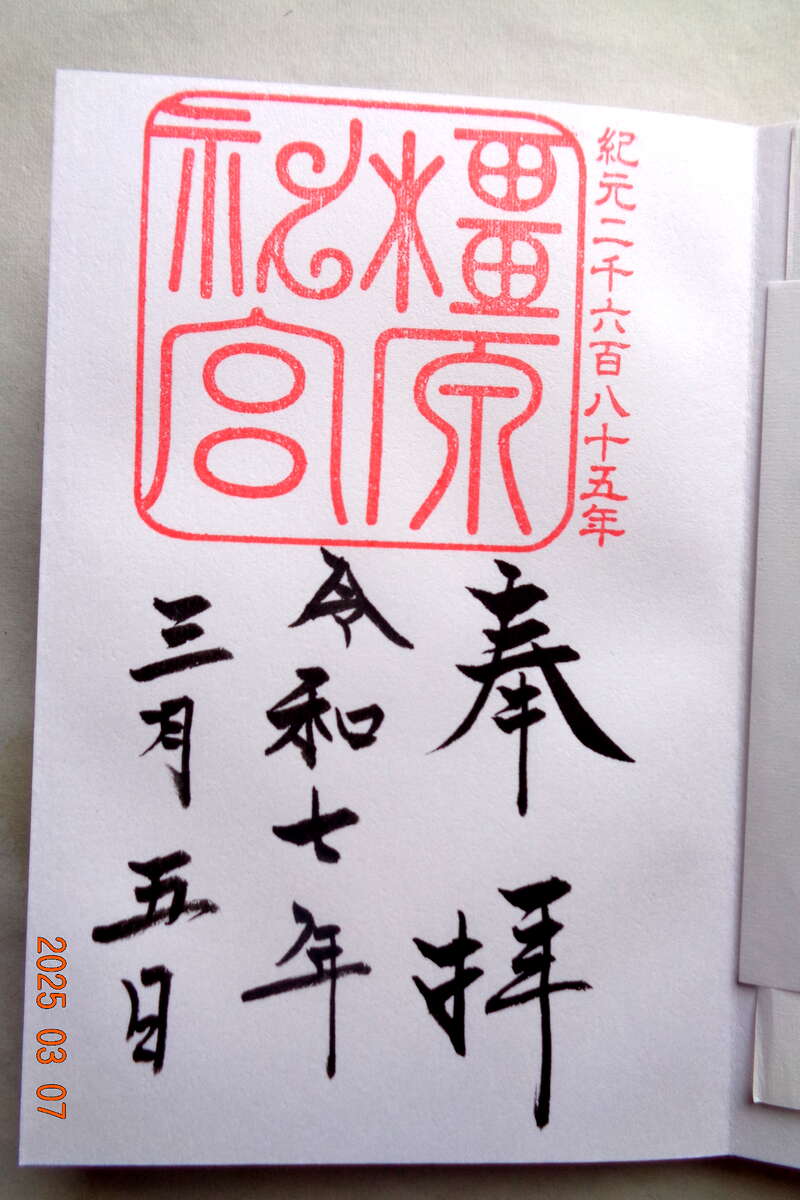 紀元二千六百八十五年
橿原
神宮
奉拝
令和七年
三月五日
2025 03 07